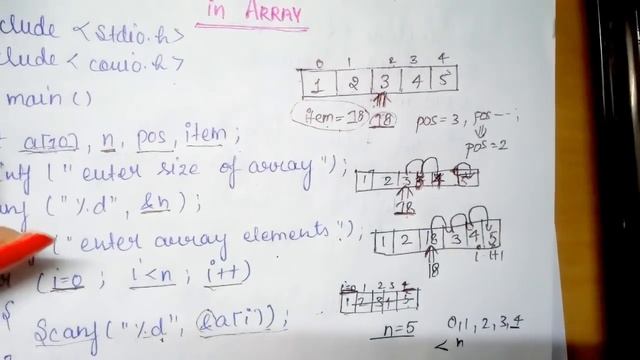 in ARRAY
clude <stdio.h>
clude <conio.h>
main()
a[10], n, pos, item;
intf ("enter size of array");
anf ("%d", &n);
("enter array elements");
(i=0 ; i<n ; i++)
Scanf("%d", &a[i]);
0 1 2 3 4
1 2 3 4 5
item=18 18 pos=3, pos--;
pos=2
1 2 3
18
1 2 18 3 4 5
i i+1
18
i=0 1 2 3 4
1 2 3 4 5
n=5 0,1,2,3,4
< n